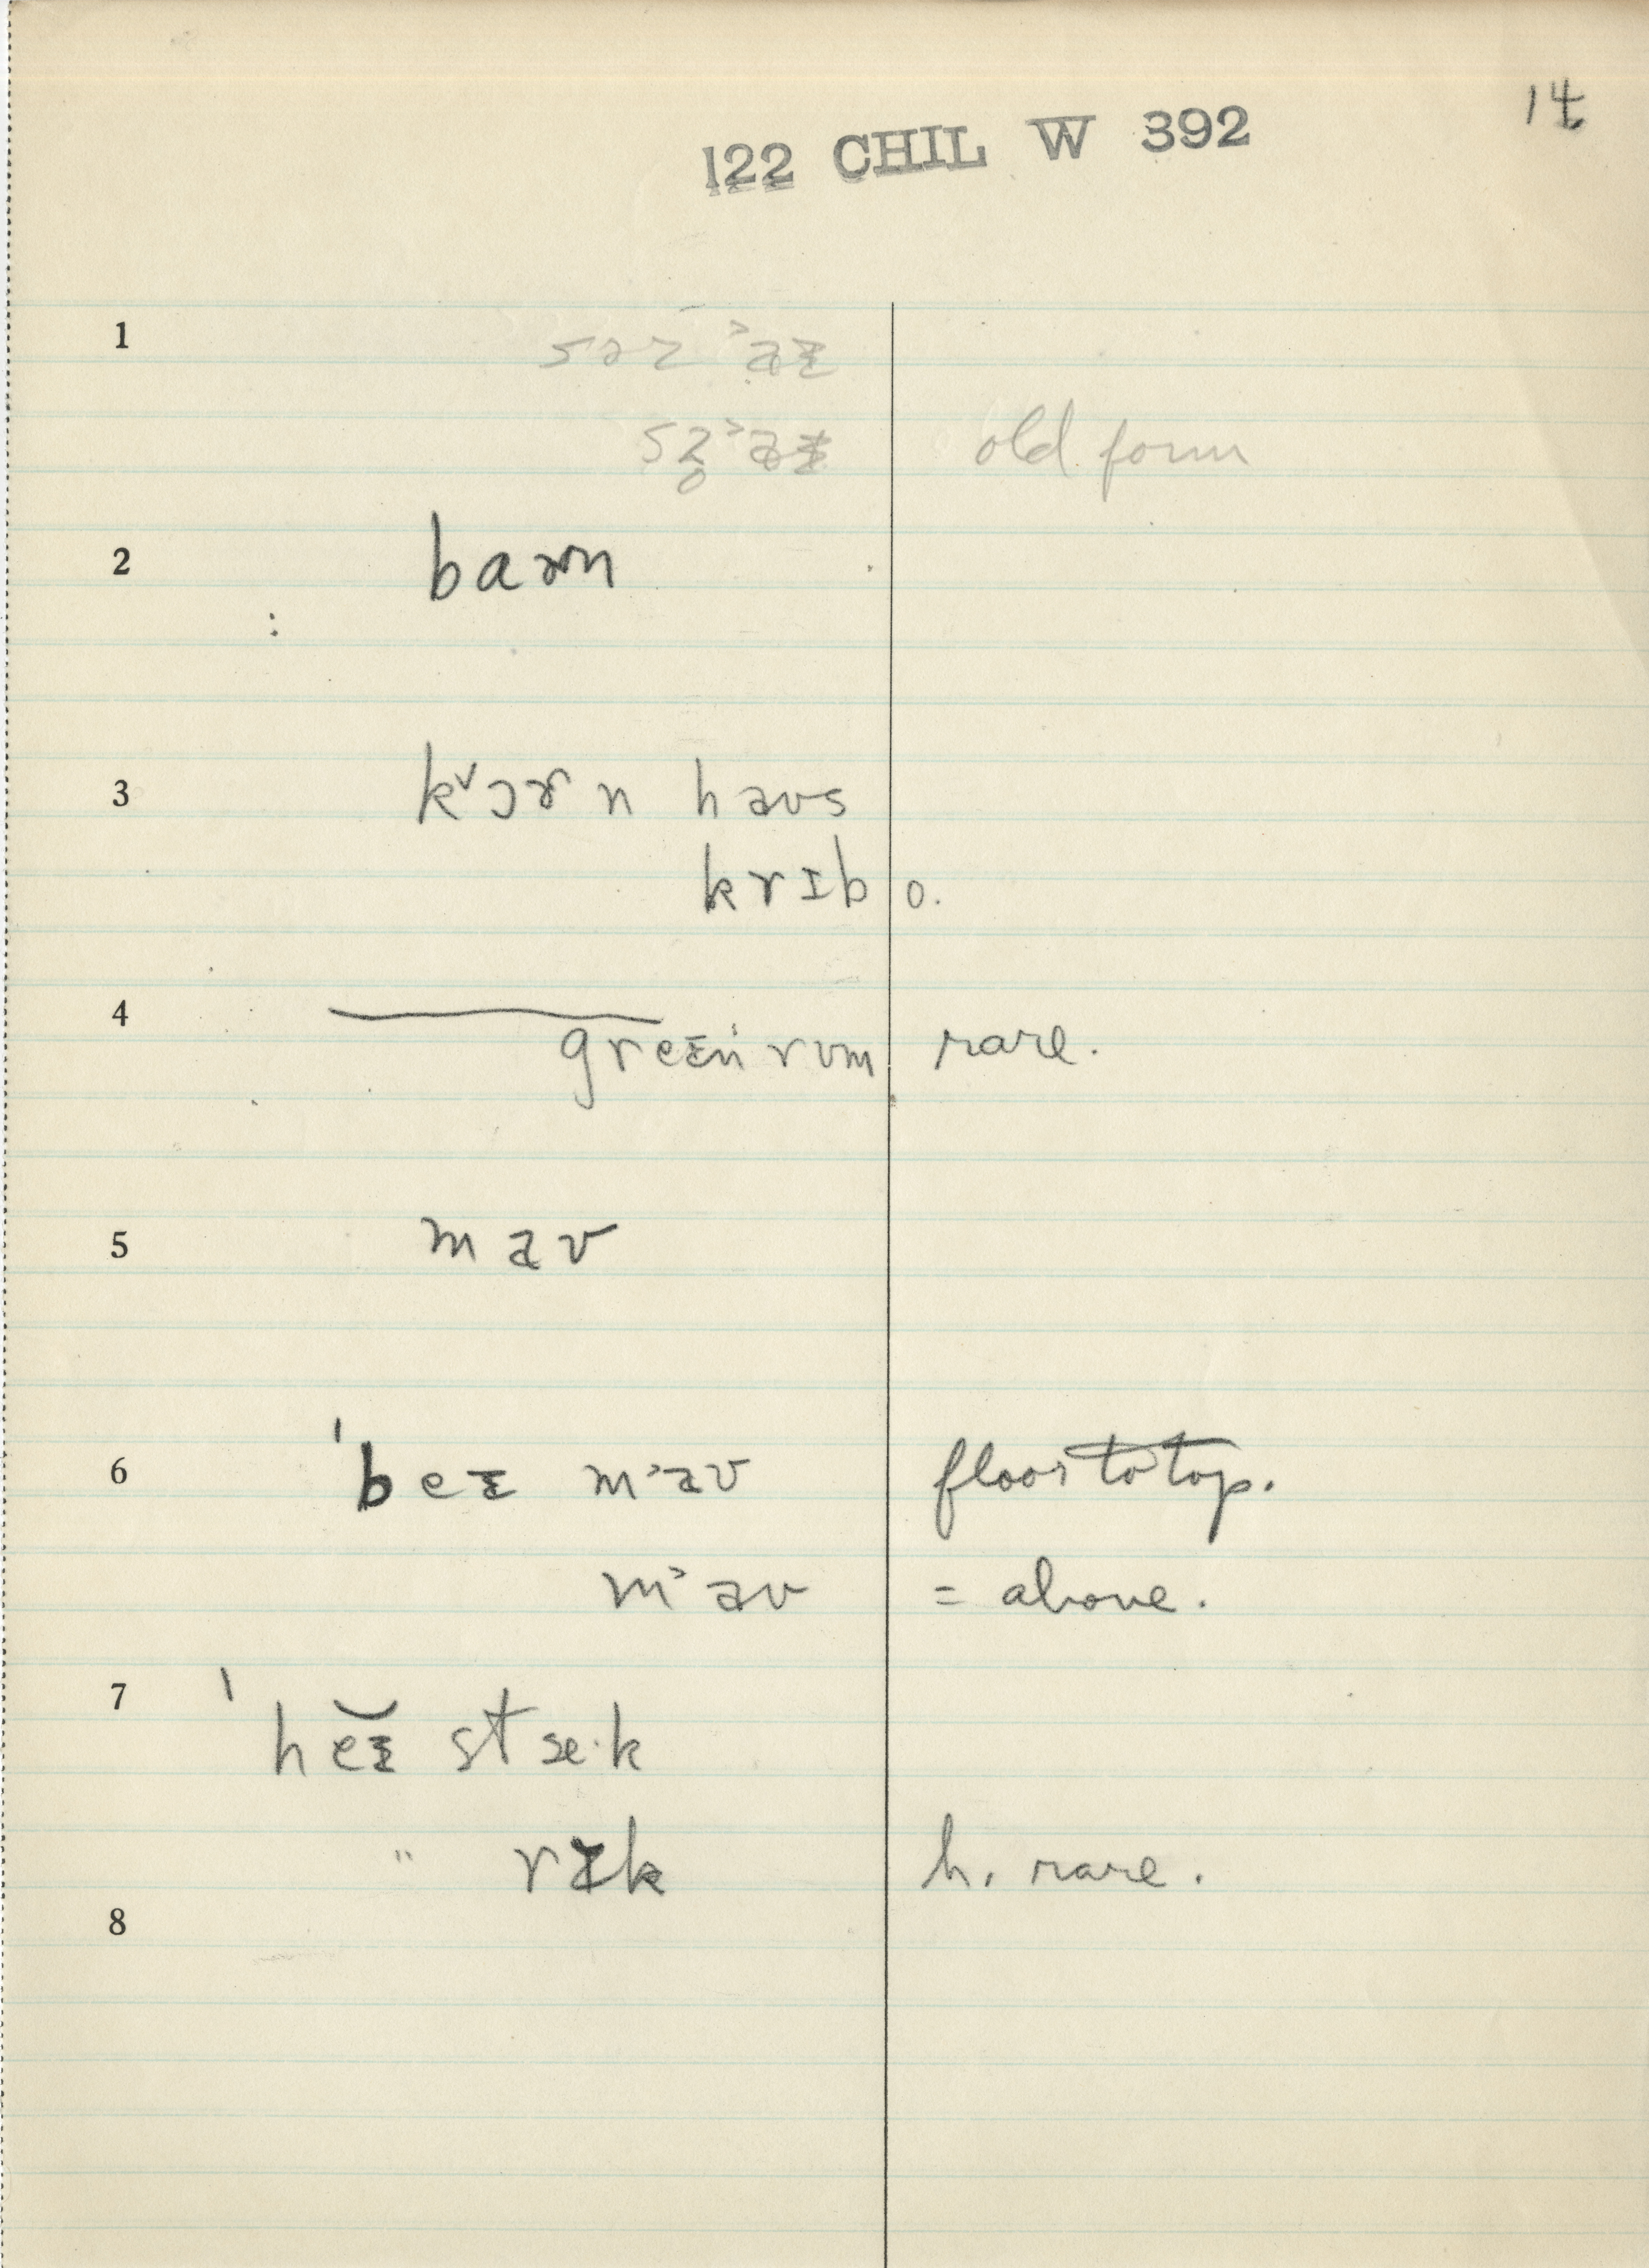 14
122 CHIL W 392
1
old form
2 barn
3 k˅ɔɚn haʊs
krɪb o.
4
greɪn rʊm rare.
5 maʊ
6 ˈbeɪ m˃aʊ floor to top.
m˃aʊ = above.
7 ˈheɪ stæ·k
" rɪk h. rare.
8